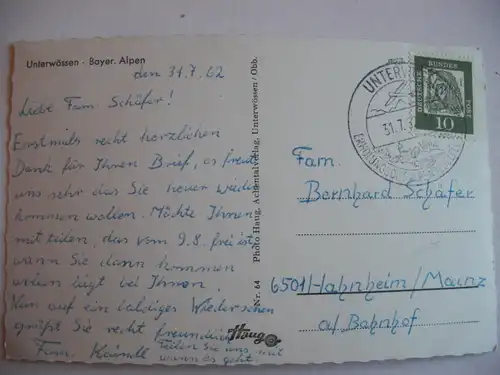 Unterwössen - Bayer. Alpen
den 31.7.62
Liebe Fam. Schäfer!
Erstmals recht herzlichen
Dank für Ihren Brief, es freute
uns sehr das Sie heuer wieder
kommen wollen. Möchte Ihnen
mitteilen, das vom 9.8. frei ist
wann Sie dann kommen
liegt bei Ihnen.
Nun auf ein baldiges Wiedersehen
grüßt Sie recht freundlich
Fam. Teilen Sie uns mit
wann es geht.
Photo Haug, Achentalverlag, Unterwössen / Obb.
Nr. 64
Haug
UNTERW
31.7.
DEUTSCHE BUNDESPOST
10
Fam.
Bernhard Schäfer
6501 Hahnheim/Mainz
a/ Bahnhof